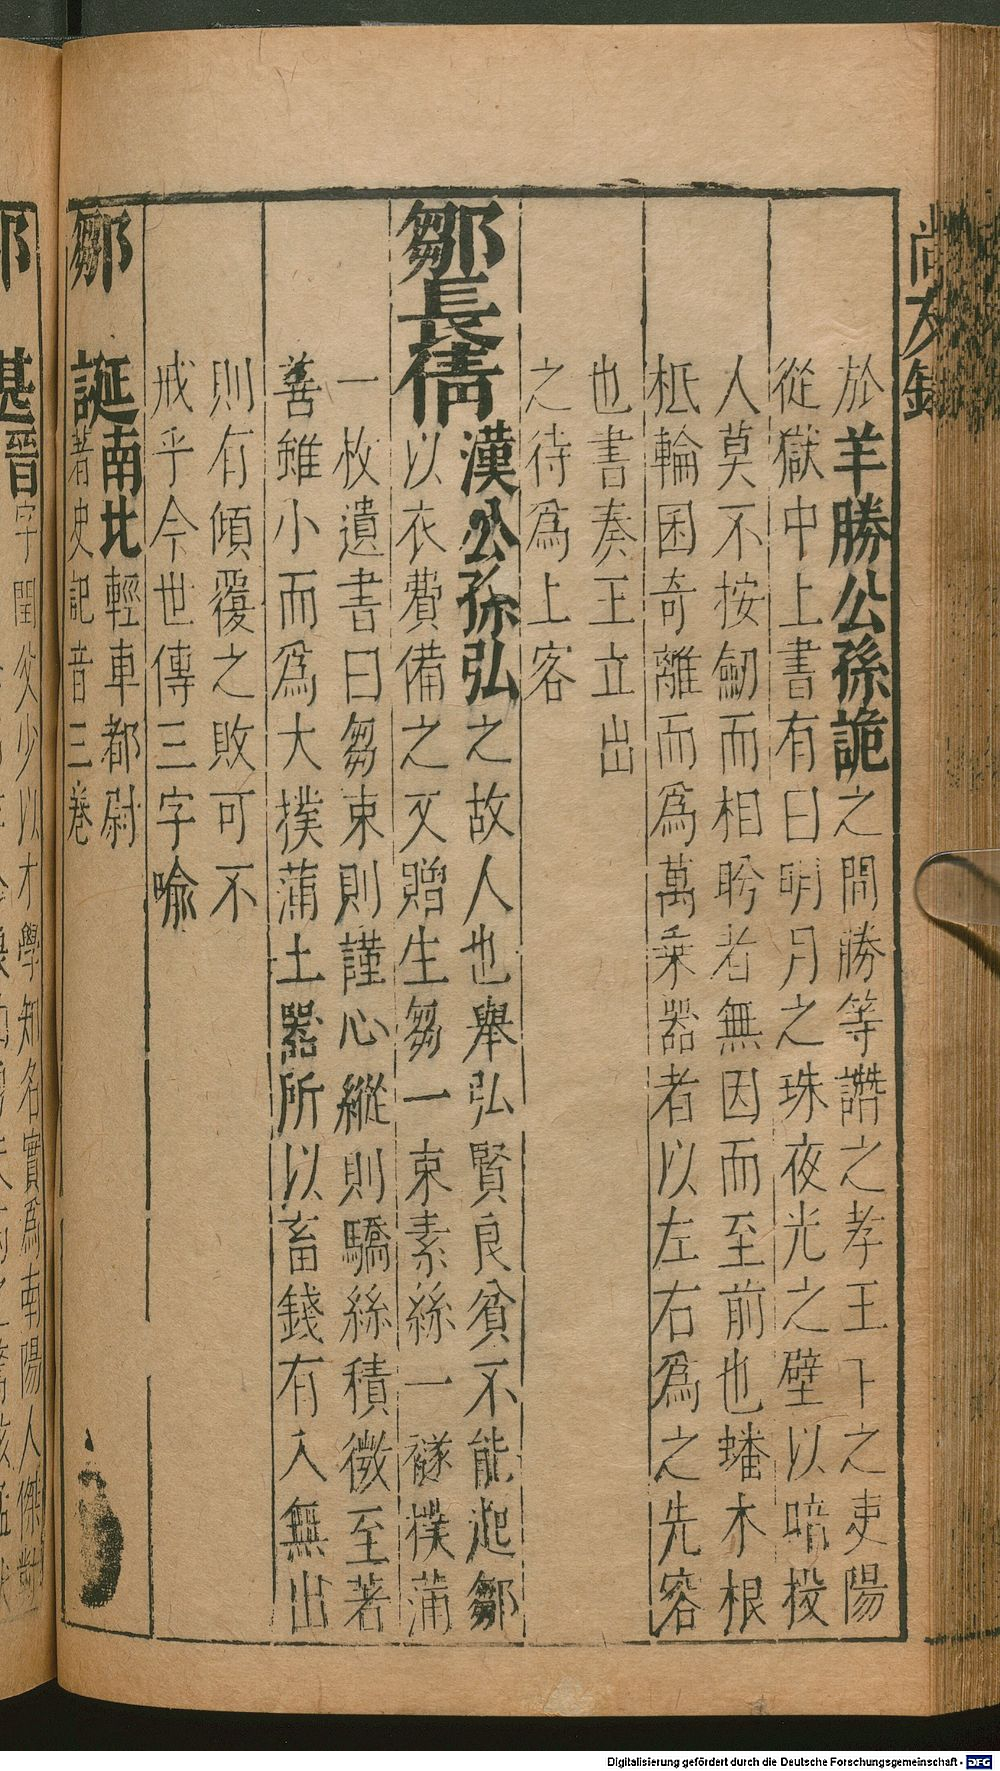 尚友錄
於羊勝公孫詭之間勝等譖之孝王下之吏陽
從獄中上書有曰明月之珠夜光之璧以暗投
人莫不按劒而相眄者無因而至前也蟠木根
柢輪囷奇離而爲萬乗器者以左右爲之先容
也書奏王立出
之待爲上客
鄒長倩漢公孫弘之故人也舉弘賢良貧不能赴鄒
以衣費備之又贈生芻一束素絲一襚樸蒲
一枚遺書曰芻束則謹心縱則驕絲積微至著
善雖小而爲大撲蒲土器所以畜錢有入無出
則有傾覆之敗可不
戒乎今世傳三字喩
鄒誕南北輕車都尉
著史記音三巻
甚晉字閏甫少以才學知名實爲南陽人傑對
Digitalisierung gefördert durch die Deutsche Forschungsgemeinschaft - DFG